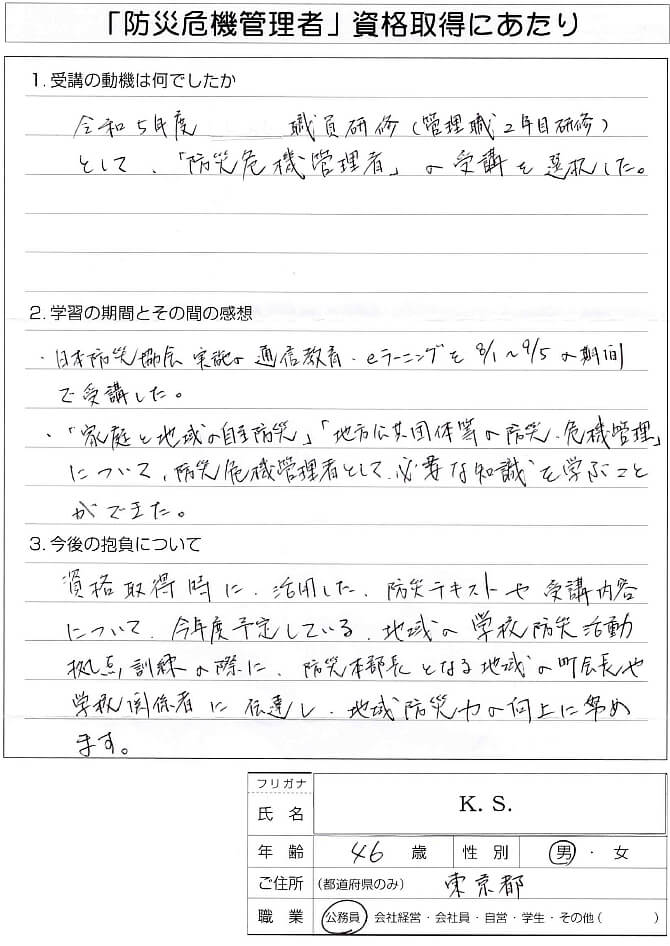 「防災危機管理者」資格取得にあたり
1. 受講の動機は何でしたか
令和5年度 職員研修(管理職2年目研修)
として、「防災危機管理者」の受講を選択した。
2. 学習の期間とその間の感想
・日本防災協会実施の通信教育・eラーニングを8/1~9/5の期間
で受講した。
・「家庭と地域の自主防災」「地方公共団体等の防災・危機管理」
について、防災危機管理者として、必要な知識を学ぶこと
ができた。
3. 今後の抱負について
資格取得時に、活用した、防災テキストや受講内容
について、今年度予定している、地域の学校防災活動
拠点訓練の際に、防災本部長となる地域の町会長や
学校関係者に伝達し、地域防災力の向上に努め
ます。
フリガナ
氏名 K. S.
年齢 46 歳 性別 男・女
ご住所 (都道府県のみ) 東京都
職業 公務員 会社経営・会社員・自営・学生・その他( )